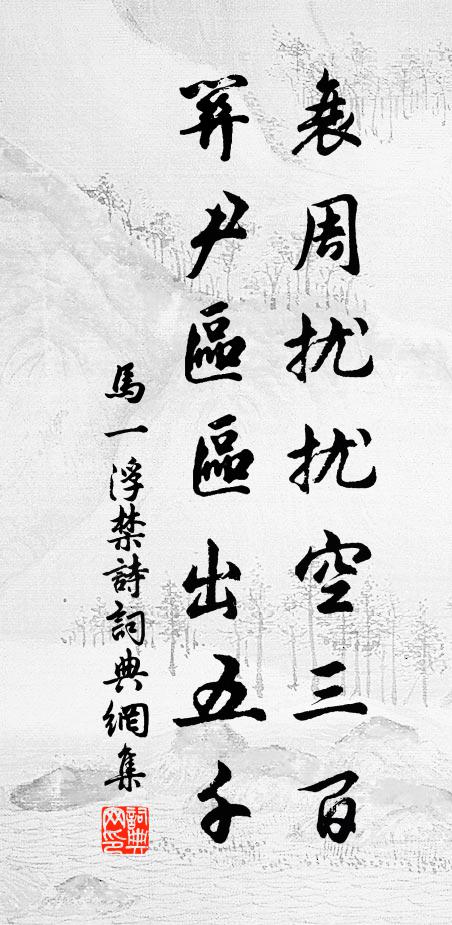 衰周扰扰空三百
关尹區區出五千
馬一浮禁詩詞典網集
詞典
网印